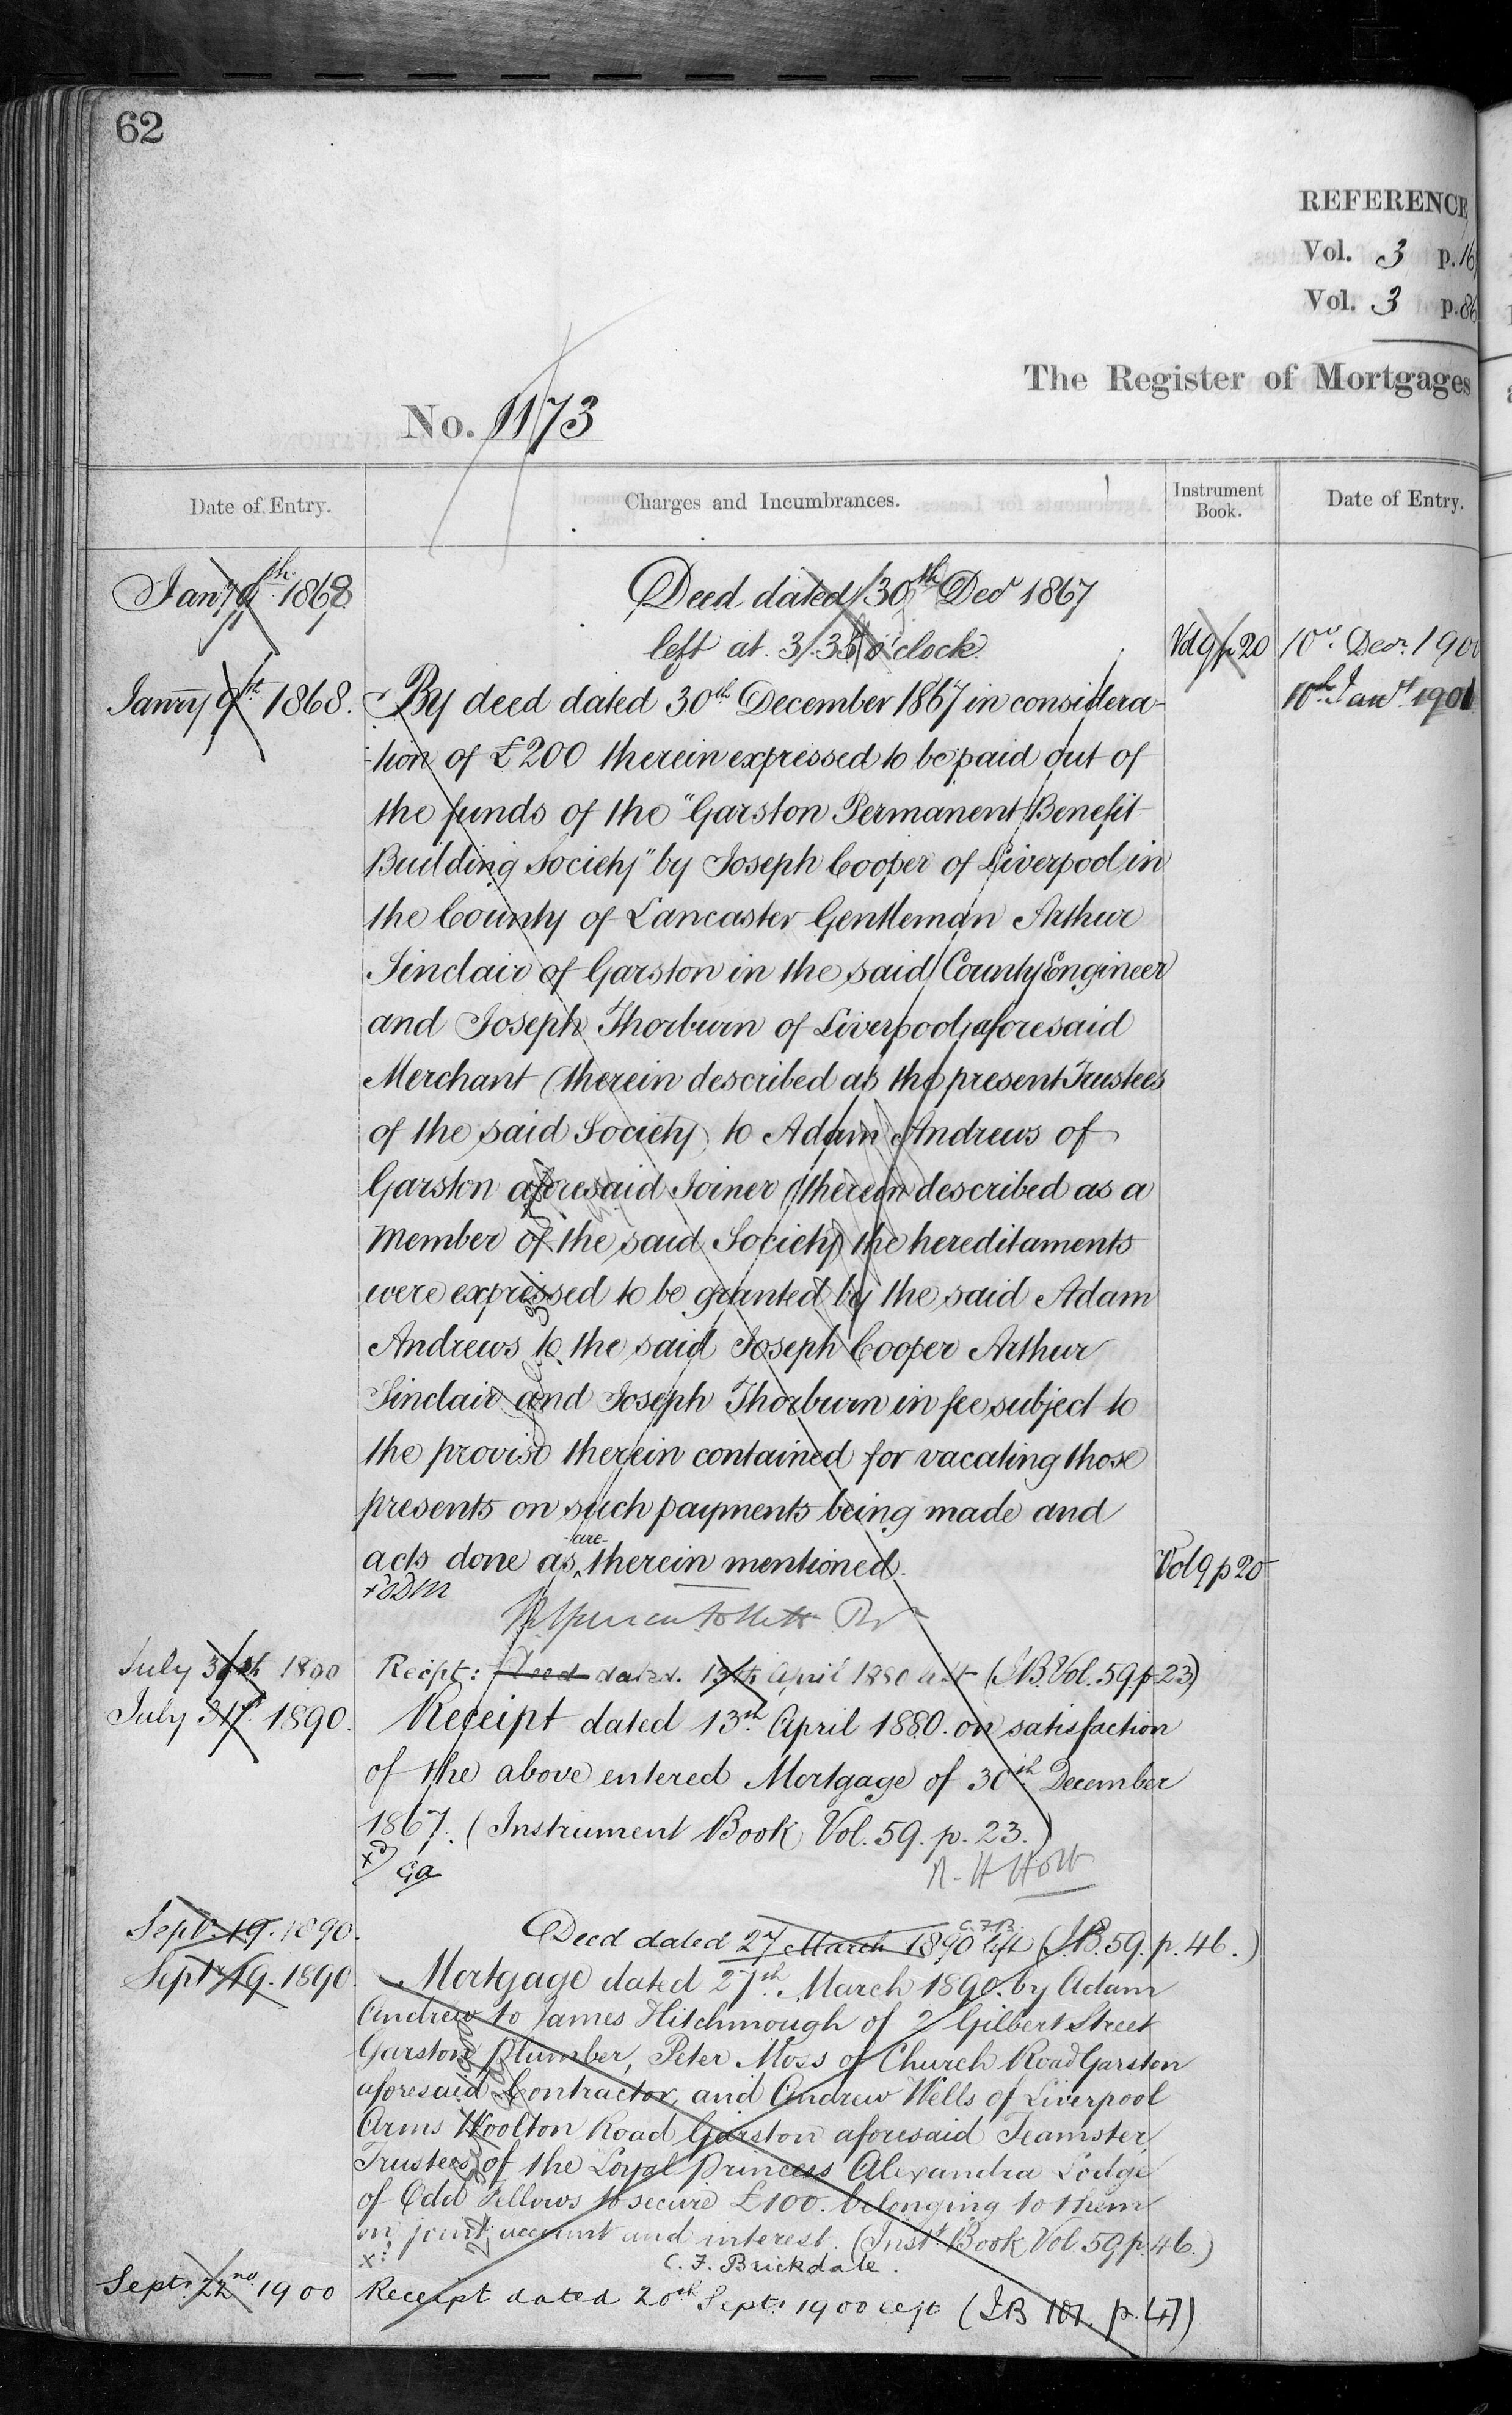 62
REFERENCE
Vol. 3 p. 16
Vol. 3 p. 86
The Register of Mortgages
No. 1173
Date of Entry.
Charges and Incumbrances.
Instrument Book.
Date of Entry.
Jany 9th 1868
Deed dated 30th Decr 1867
left at 3.35 o'clock
Vol 9 p 20
10th Decr. 190
Janry 9th 1868.
By deed dated 30th December 1867 in considera-
10th Jany 1901
-tion of £200 therein expressed to be paid out of
the funds of the "Garston Permanent Benefit
Building Society" by Joseph Cooper of Liverpool in
the County of Lancaster Gentleman Arthur
Sinclair of Garston in the said County Engineer
and Joseph Thorburn of Liverpool aforesaid
Merchant (therein described as the present Trustees
of the said Society) to Adam Andrews of
Garston aforesaid Joiner (therein described as a
Member of the said Society) the hereditaments
were expressed to be granted by the said Adam
Andrews to the said Joseph Cooper Arthur
Sinclair and Joseph Thorburn in fee subject to
the proviso therein contained for vacating those
presents on such payments being made and
acts done as are therein mentioned.
Vol 9 p 20
July 31st 1890
Recipt: Deed dated 13th April 1880 left (I.B. Vol. 59. p. 23)
July 31st. 1890.
Receipt dated 13th April 1880. on satisfaction
of the above entered Mortgage of 30th December
1867. (Instrument Book Vol. 59. p. 23.)
Septr. 19. 1890.
Deed dated 27 March 1890 left (I.B. 59. p. 46.)
C.F.B.
Septr. 19. 1890.
Mortgage dated 27th. March 1890. by Adam
Andrew to James Hitchmough of 7 Gilbert Street
Garston Plumber, Peter Moss of Church Road Garston
aforesaid Contractor, and Andrew Wells of Liverpool
Arms Woolton Road Garston aforesaid Teamster,
Trustees of the Loyal Princess Alexandra Lodge
of Odd Fellows to secure £100. belonging to them
on joint account and interest. (Inst. Book Vol. 59. p. 46.)
C. F. Brickdale.
Septr. 22nd 1900
Receipt dated 20th Septr. 1900 left (I B 101. p. 47)